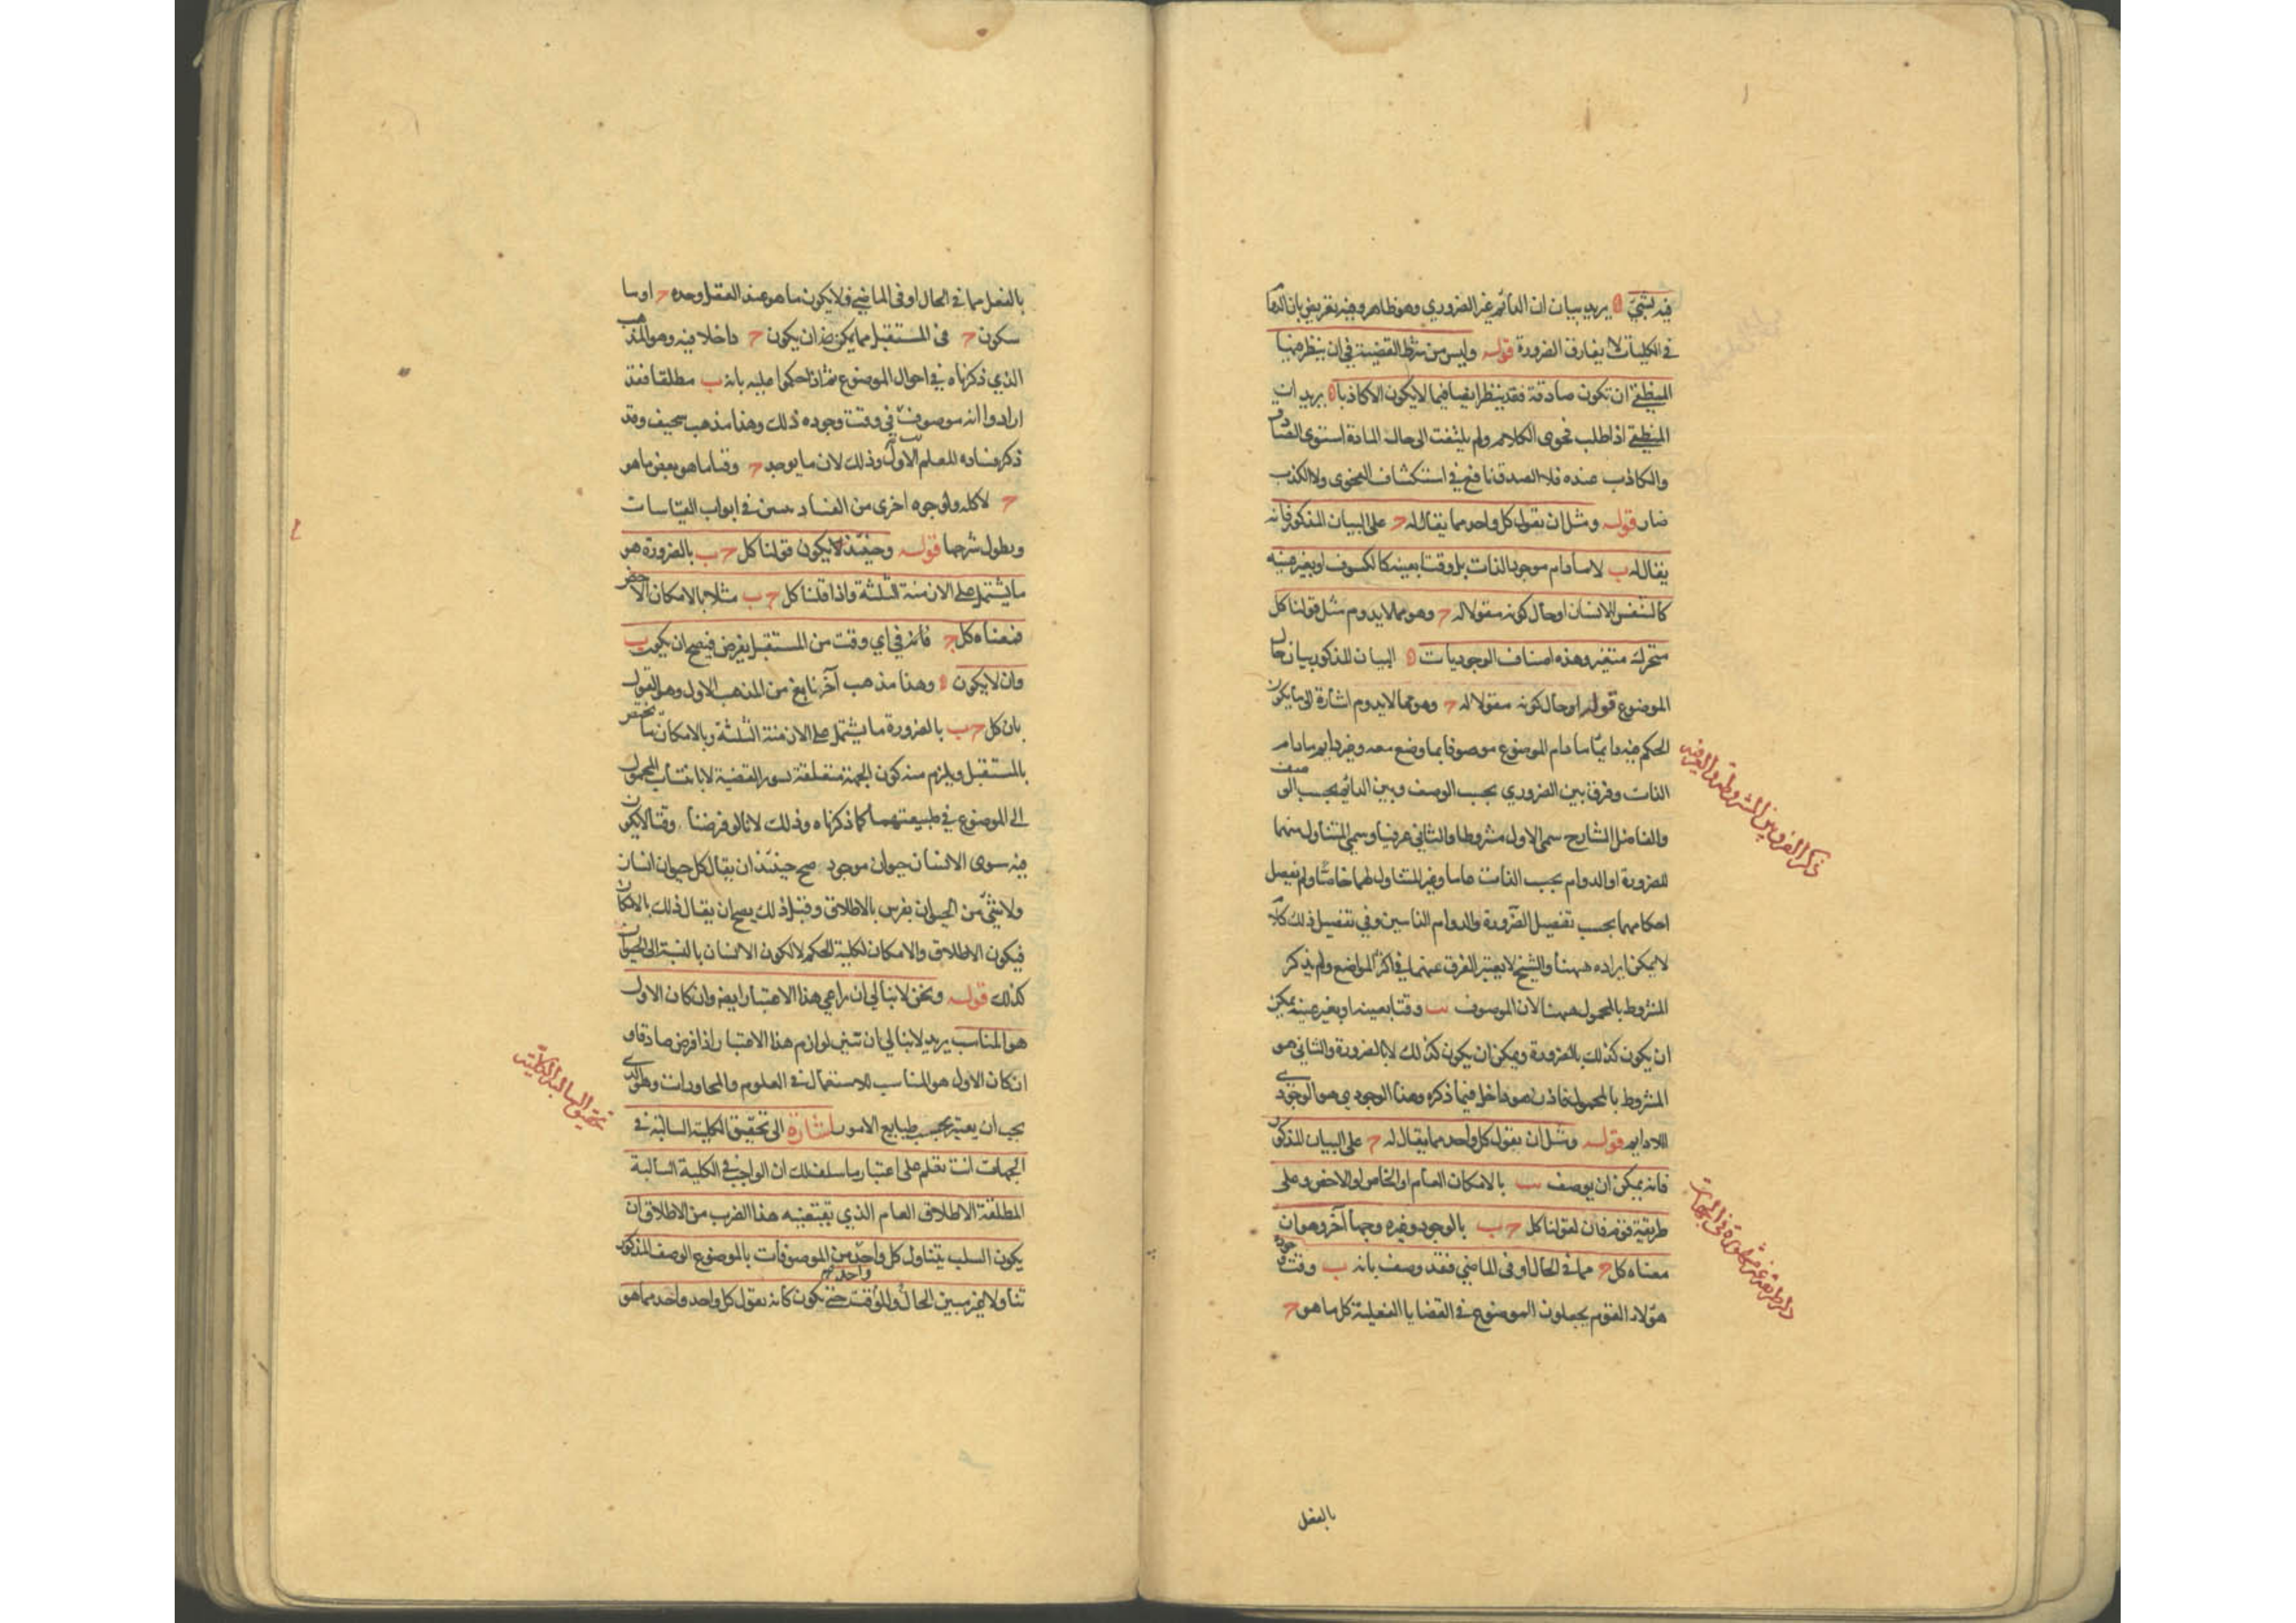 فيه بشيء ه يريد بيان ان الدائم غير الضروري وهو ظاهر وفيه تعريض بان الدوام
في الكليات لا يفارق الضرورة قوله وليس من شرط القضية في ان ينظر فيها
المنطقي ان تكون صادقة فقد ينظر ايضا فيما لا يكون الا كاذبا ه يريد ان
المنطقي اذا طلب فحوى الكلام ولم يلتفت الى حال المادة استوى الصادق
والكاذب عنده فلا الصدق نافع في استكشاف الفحوى ولا الكذب
ضار قوله ومثل ان نقول كل واحد مما يقال له ج على البيان المذكور فانه
يقال له ب لا ما دام موجود الذات بل وقتا بعينه كالكسوف او بغير عينه
كالتنفس للانسان او حال كونه مقولا له ج وهو مما لا يدوم مثل قولنا كل
متحرك متغير وهذه اصناف الوجوديات ه البيان المذكور بيان حال
الموضوع قوله او حال كونه مقولا له ج وهو مما لا يدوم اشارة الى ما يكون
الحكم فيه دائما ما دام الموضوع موصوفا بما وضع معه وغير دايم ما دام
الذات وفرق بين الضروري بحسب الوصف وبين الدائم بحسب الوصف
والفاضل الشارح سمى الاول مشروطا والثاني عرفيا وسمى المتناول منهما
للضرورة او الدوام بحسب الذات عاما وغير المتناول لهما خاصا ولم يفصل
احكامهما بحسب تفصيل الضرورة والدوام الذاتيين وفي تفصيل ذلك كلام
لا يمكن ايراده ههنا والشيخ لا يعتبر الفرق عنهما في اكثر المواضع ولم يذكر
المشروط بالمحمول ههنا لان الموصوف بب وقتا بعينه او بغير عينه يمكن
ان يكون كذلك بالضرورة ويمكن ان يكون كذلك لا بالضرورة والثاني هو
المشروط بالمحمول فاذن هو داخل فيما ذكره وهذا الوجودي هو الوجودي
اللادايم قوله ومثل ان نقول كل واحد مما يقال له ج على البيان المذكور
فانه يمكن ان يوصف بب بالامكان العام او الخاص او الاخص وعلى
طريقة قوم فان لقولنا كل ج ب بالوجود وغيره وجها آخر وهو ان
معناه كل ج مما في الحال او في الماضي فقد وصف بانه ب وقت وجوده
هؤلاء القوم يجعلون الموضوع في القضايا الفعلية كل ما هو ج
ذكر الفرق بين المشروطة والعرفية
بالفعل
بالفعل مما في الحال او في الماضي فلا يكون ما هو عند العقل وحده ج او ما
سيكون ج في المستقبل مما يمكن ان يكون ج داخلا فيه وهو المذهب
الذي ذكرناه في احوال الموضوع ثم اذا حكموا عليه بانه ب مطلقا فقد
ارادوا انه موصوف بب في وقت وجوده ذلك وهذا مذهب سخيف وقد
ذكر فساده للمعلم الاول وذلك لان ما يوجد ج وقتا ما هو بعض ما هو
ج لا كله ولوجوه اخرى من الفساد تبين في ابواب القياسات
ويطول شرحها قوله وحينئذ لا يكون قولنا كل ج ب بالضرورة هو
ما يشتمل على الازمنة الثلثة واذا قلنا كل ج ب مثلا بالامكان الاخص
فمعناه كل ج فانه في اي وقت من المستقبل يفرض فيصح ان يكون ب
وان لا يكون ه وهذا مذهب آخر نابع من المذهب الاول وهو القول
بان كل ج ب بالضرورة ما يشتمل على الازمنة الثلثة وبالامكان ما يختص
بالمستقبل ويلزم منه كون الجهة متعلقة بسور القضية لا بانتساب المحمول
الى الموضوع في طبيعتهما كما ذكرناه وذلك لانا لو فرضنا وقتا لا يكون
فيه سوى الانسان حيوان موجود صح حينئذ ان يقال كل حيوان انسان
ولا شيء من الحيوان بفرس بالاطلاق وقبل ذلك يصح ان يقال ذلك بالامكان
فيكون الاطلاق والامكان لكلية الحكم لا لكون الانسان بالنسبة الى الحيوان
كذلك قوله ونحن لا نبالي ان نراعي هذا الاعتبار ايضا وان كان الاول
هو المناسب يريد لا نبالي ان نبني لوازم هذا الاعتبار اذا فرض صادقا و
ان كان الاول هو المناسب للاستعمال في العلوم والمحاورات وهو الذي
يجب ان يعتبر بحسب طبايع الامور اشارة الى تحقيق الكلية السالبة في
الجهات انت تعلم على اعتبار ما سلف لك ان الواجب في الكلية السالبة
المطلقة الاطلاق العام الذي يقتضيه هذا الضرب من الاطلاق ان
يكون السلب يتناول كل واحد من الموصوفات بالموضوع الوصف المذكور
تناولا غير مبين الحال والوقت حتى يكون كانه يقول كل واحد واحد مما هو
تحقيق السالبة الكلية